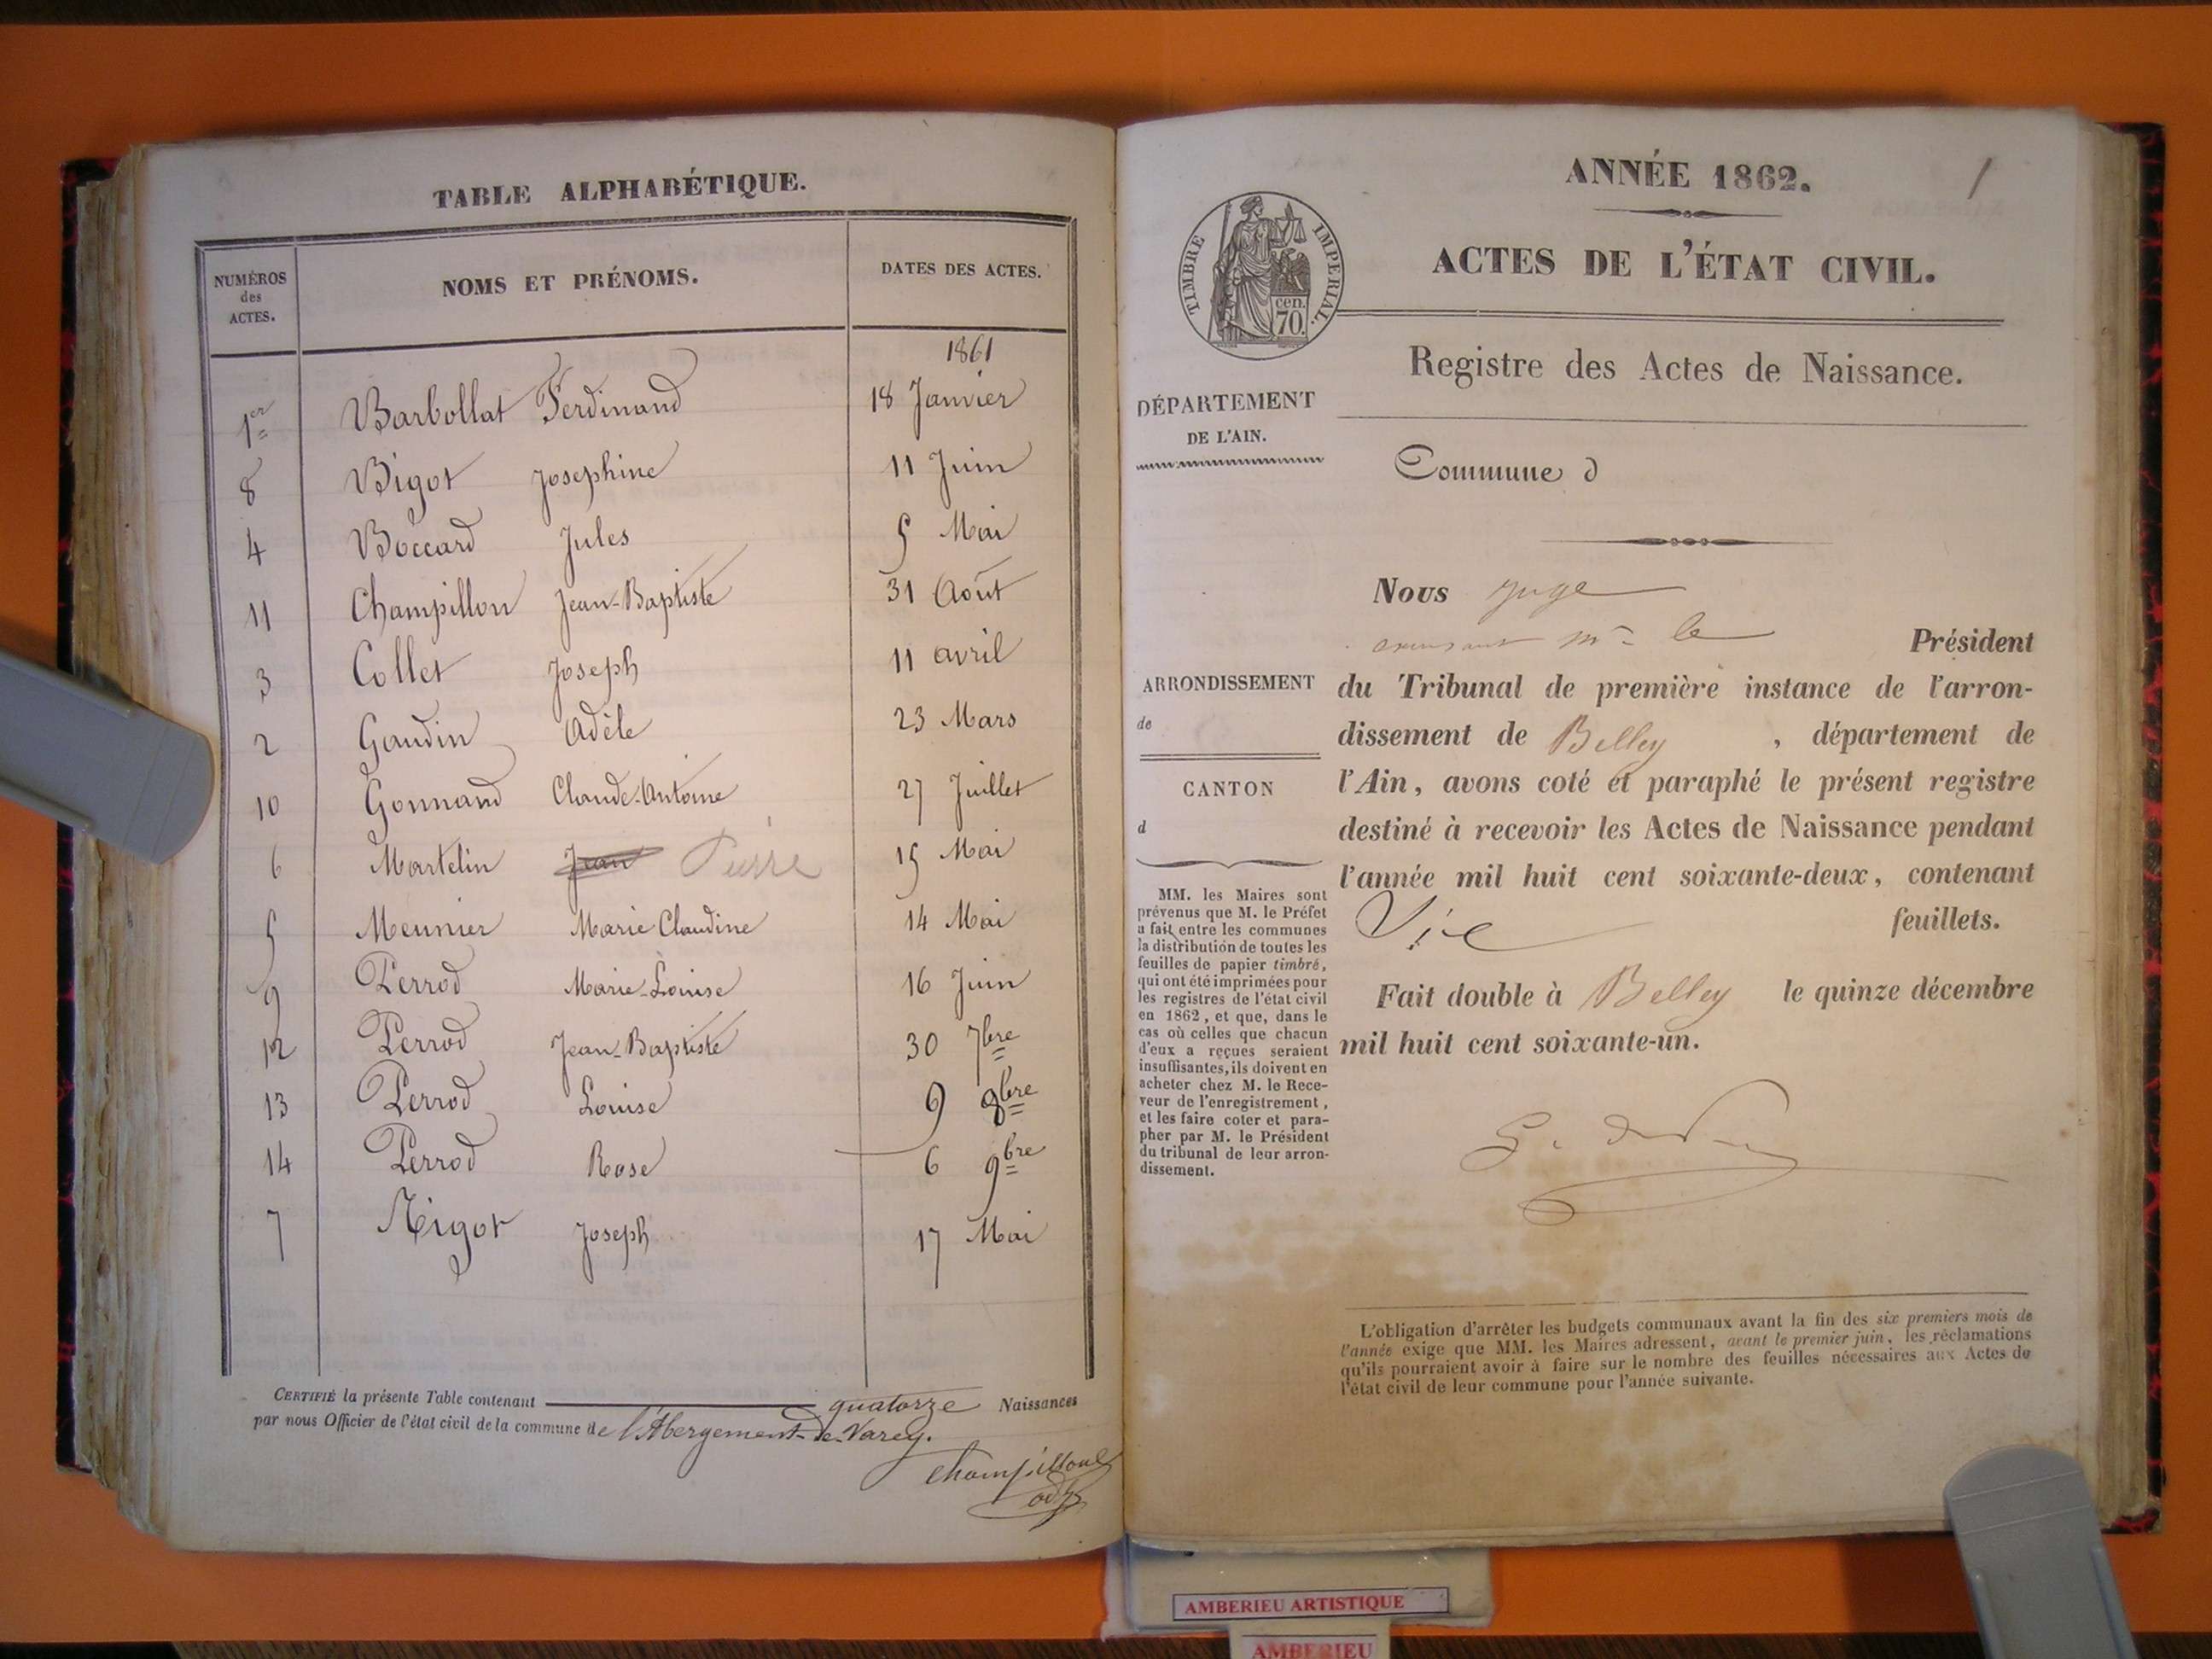 TABLE ALPHABÉTIQUE.
NUMÉROS des ACTES. NOMS ET PRÉNOMS. DATES DES ACTES.
1861
1er Barbollat Ferdinand 18 Janvier
8 Bigot Josephine 11 Juin
4 Boccard Jules 5 Mai
11 Champillon Jean-Baptiste 31 Août
3 Collet Joseph 11 avril
2 Gaudin Adèle 23 Mars
10 Gonnand Claude-Antoine 27 Juillet
6 Martelin Jean Pierre 15 Mai
5 Meunier Marie Claudine 14 Mai
9 Perrod Marie-Louise 16 Juin
12 Perrod Jean-Baptiste 30 7bre
13 Perrod Louise 9 8bre
14 Perrod Rose 6 9bre
7 Rigot Joseph 17 Mai
CERTIFIÉ la présente Table contenant quatorze Naissances
par nous Officier de l'état civil de la commune de l'Abergement-de-Varey.
Champillon
adj
1
ANNÉE 1862.
TIMBRE IMPERIAL.
cen.
70.
ACTES DE L'ÉTAT CIVIL.
Registre des Actes de Naissance.
DÉPARTEMENT
DE L'AIN.
Commune d
Nous juge
le Président
ARRONDISSEMENT
de
CANTON
d
du Tribunal de première instance de l'arron-
dissement de Belley , département de
l'Ain, avons coté et paraphé le présent registre
destiné à recevoir les Actes de Naissance pendant
l'année mil huit cent soixante-deux, contenant
feuillets.
Fait double à Belley le quinze décembre
mil huit cent soixante-un.
MM. les Maires sont
prévenus que M. le Préfet
a fait entre les communes
la distribution de toutes les
feuilles de papier timbré,
qui ont été imprimées pour
les registres de l'état civil
en 1862, et que, dans le
cas où celles que chacun
d'eux a reçues seraient
insuffisantes, ils doivent en
acheter chez M. le Rece-
veur de l'enregistrement,
et les faire coter et para-
pher par M. le Président
du tribunal de leur arron-
dissement.
L'obligation d'arrêter les budgets communaux avant la fin des six premiers mois de
l'année exige que MM. les Maires adressent, avant le premier juin, les réclamations
qu'ils pourraient avoir à faire sur le nombre des feuilles nécessaires aux Actes de
l'état civil de leur commune pour l'année suivante.
AMBERIEU ARTISTIQUE
AMBERIEU